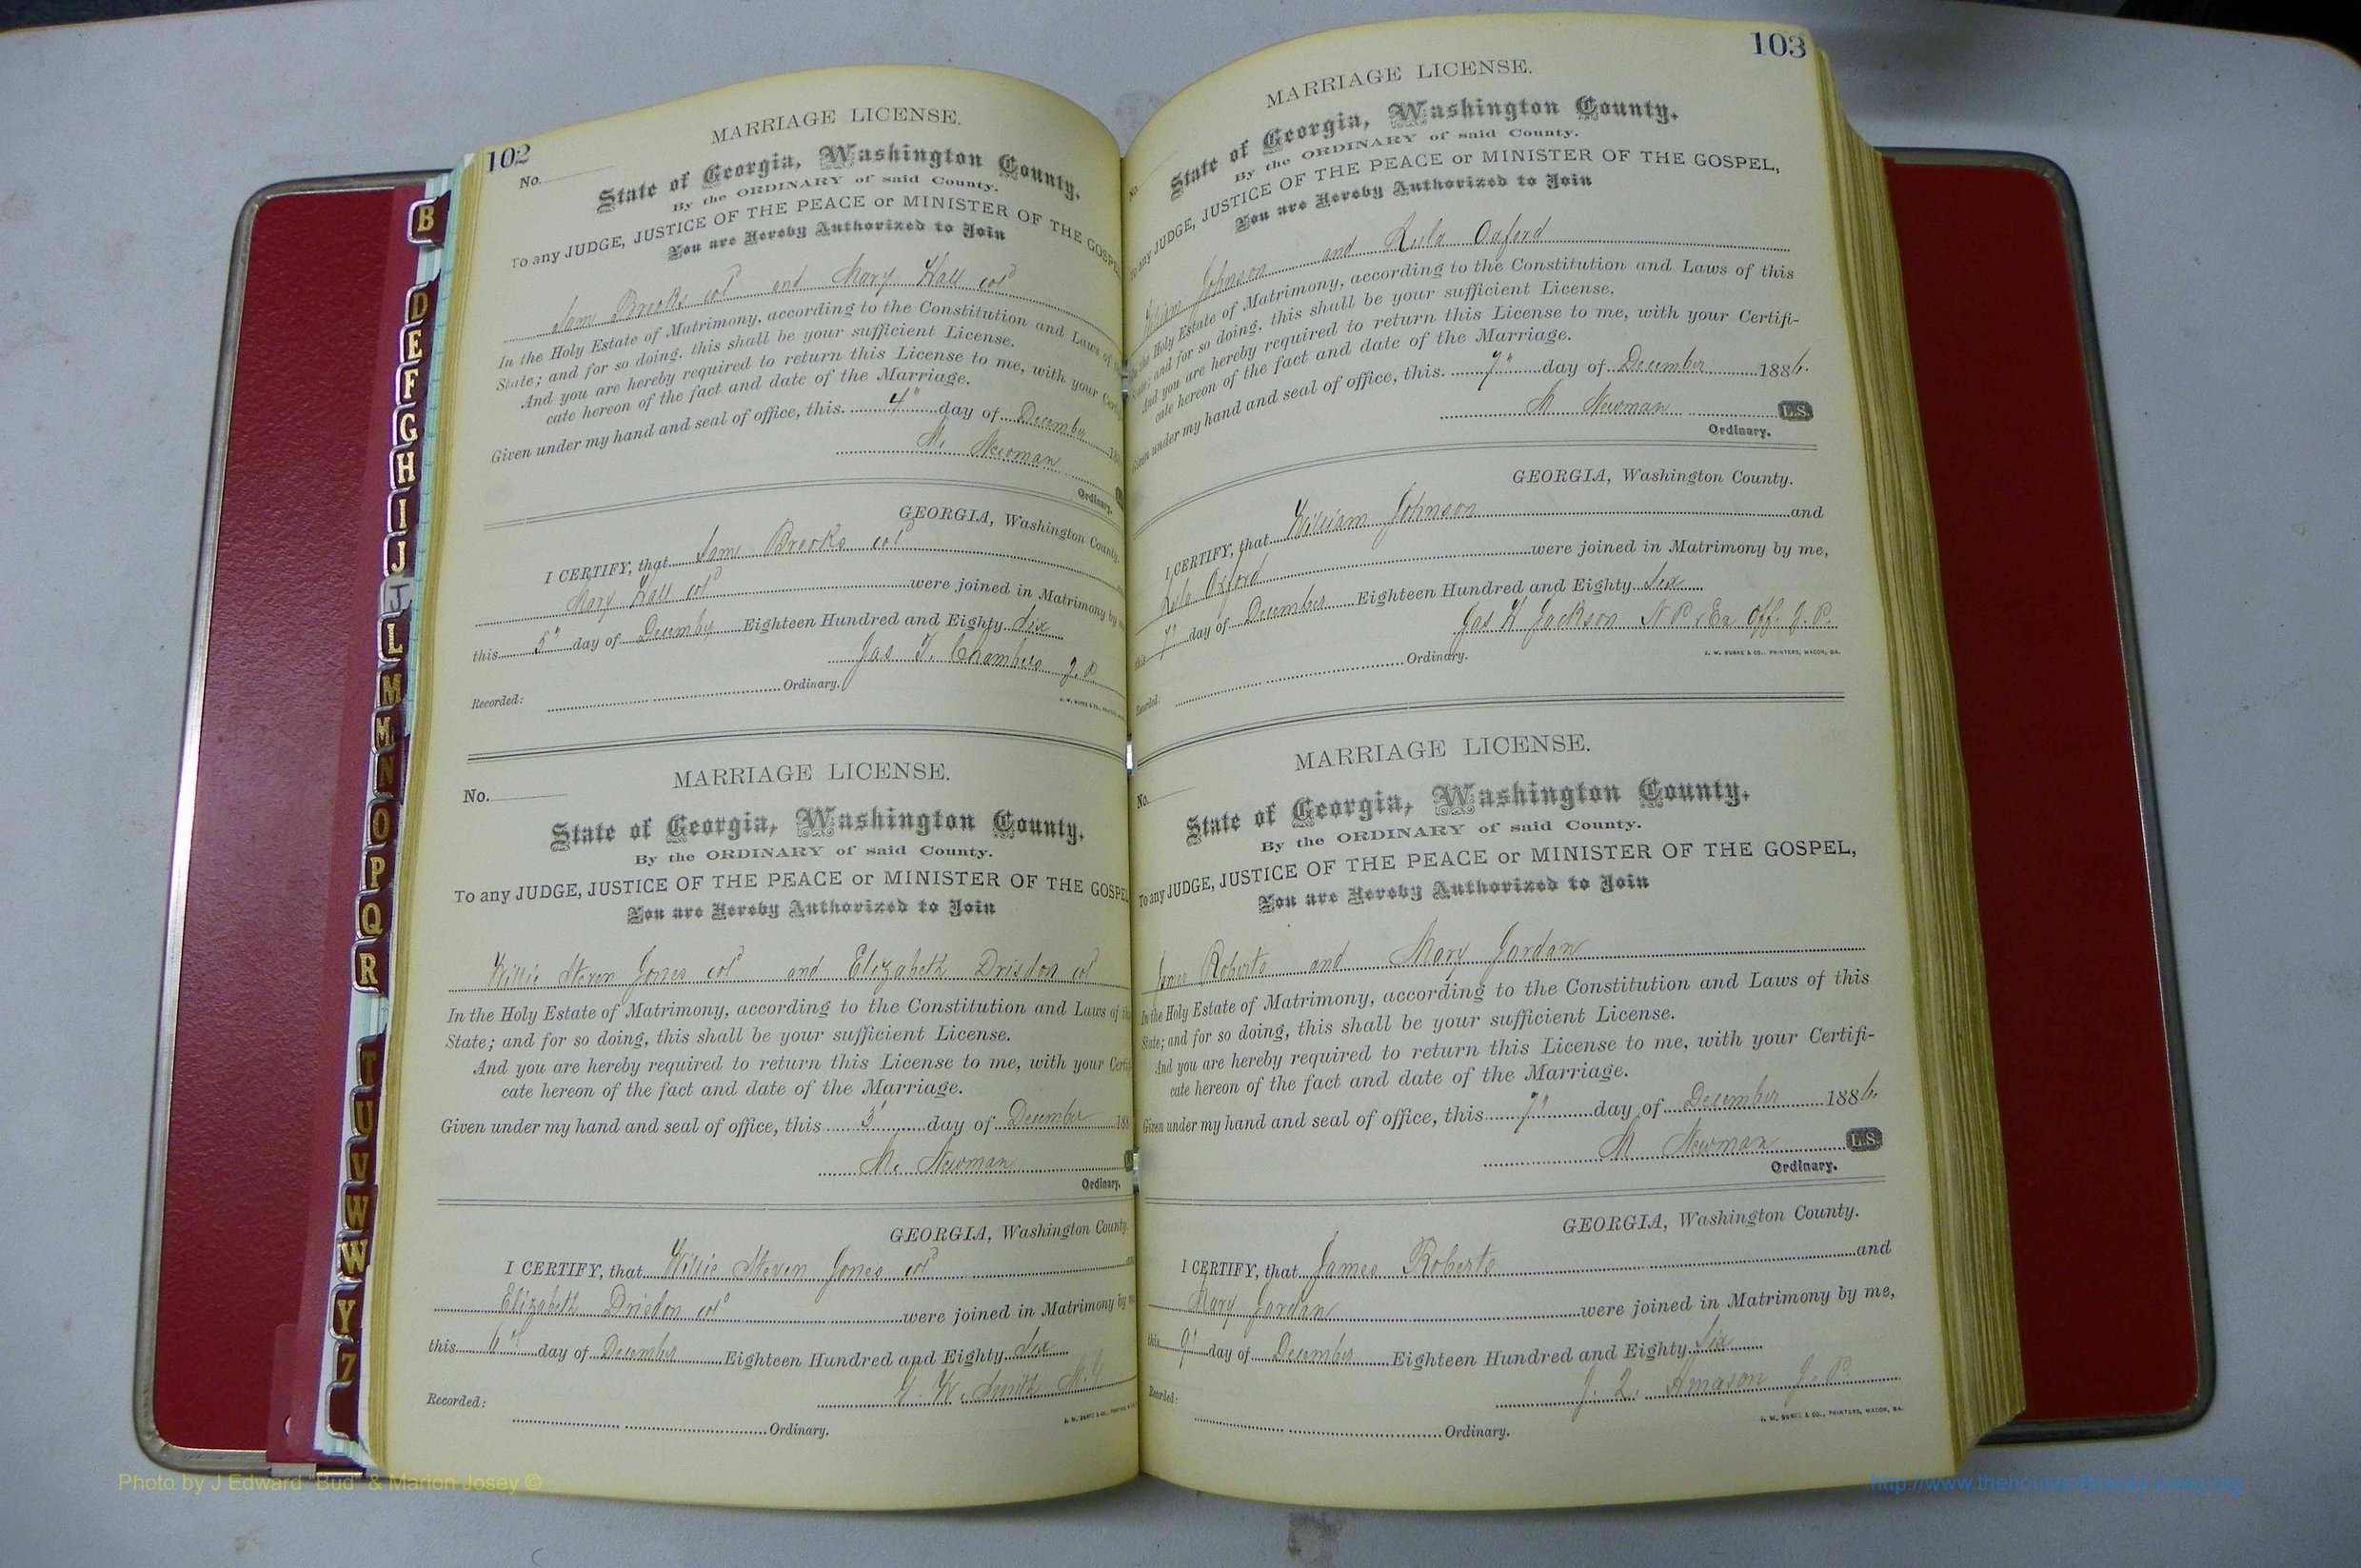 102
MARRIAGE LICENSE.
No.
State of Georgia, Washington County.
By the ORDINARY of said County.
To any JUDGE, JUSTICE OF THE PEACE or MINISTER OF THE GOSPEL
You are Hereby Authorized to Join
Sam Brooks col and Mary Hall col
In the Holy Estate of Matrimony, according to the Constitution and Laws of
State; and for so doing. this shall be your sufficient License.
And you are hereby required to return this License to me, with your Certifi
cate hereon of the fact and date of the Marriage.
Given under my hand and seal of office, this 4" day of December 188
M. Newman
Ordinary.
GEORGIA, Washington County.
I CERTIFY, that Sam Brooks col
Mary Hall col were joined in Matrimony by
this 5" day of December Eighteen Hundred and Eighty Six
Jas T. Chambers J.P.
Recorded: Ordinary.
MARRIAGE LICENSE.
No.
State of Georgia, Washington County.
By the ORDINARY of said County.
To any JUDGE, JUSTICE OF THE PEACE or MINISTER OF THE GOSPEL
You are Hereby Authorized to Join
Willie Steven Jones col and Elizabeth Drisdon col
In the Holy Estate of Matrimony, according to the Constitution and Laws of
State; and for so doing, this shall be your sufficient License.
And you are hereby required to return this License to me, with your Certi
cate hereon of the fact and date of the Marriage.
Given under my hand and seal of office, this 3' day of December 188
M. Newman
Ordinary.
GEORGIA, Washington County.
I CERTIFY, that Willie Steven Jones col
Elizabeth Drisdon col were joined in Matrimony by
this 6th day of December Eighteen Hundred and Eighty Six
G. W. Smith M.G
Recorded: Ordinary.
103
MARRIAGE LICENSE.
No.
State of Georgia, Washington County.
By the ORDINARY of said County.
To any JUDGE, JUSTICE OF THE PEACE or MINISTER OF THE GOSPEL,
You are Hereby Authorized to Join
William Johnson and Lula Oxford
In the Holy Estate of Matrimony, according to the Constitution and Laws of this
State; and for so doing. this shall be your sufficient License.
And you are hereby required to return this License to me, with your Certifi-
cate hereon of the fact and date of the Marriage.
Given under my hand and seal of office, this. 7" day of December 1886.
M Newman L.S.
Ordinary.
GEORGIA, Washington County.
I CERTIFY, that William Johnson and
Lula Oxford were joined in Matrimony by me,
this 7" day of December Eighteen Hundred and Eighty Six
Jas H Jackson N P & Ex Off. J. P.
Recorded: Ordinary.
J. W. BURKE & CO., PRINTERS, MACON, GA.
MARRIAGE LICENSE.
No.
State of Georgia, Washington County.
By the ORDINARY of said County.
To any JUDGE, JUSTICE OF THE PEACE or MINISTER OF THE GOSPEL,
You are Hereby Authorized to Join
James Roberts and Mary Jordan
In the Holy Estate of Matrimony, according to the Constitution and Laws of this
State; and for so doing, this shall be your sufficient License.
And you are hereby required to return this License to me, with your Certifi-
cate hereon of the fact and date of the Marriage.
Given under my hand and seal of office, this 7" day of December 1886
M Newman L.S.
Ordinary.
GEORGIA, Washington County.
I CERTIFY, that James Roberts and
Mary Jordan were joined in Matrimony by me,
this 9" day of December Eighteen Hundred and Eighty Six
J. Q. Amason J. P.
Recorded: Ordinary.
J. W. BURKE & CO., PRINTERS, MACON, GA.
B
D
E
F
G
H
I
J
J
L
M
M
N
O
P
Q
R
T
U
V
W
W
Y
Z
Photo by J Edward "Bud" & Marion Josey ©